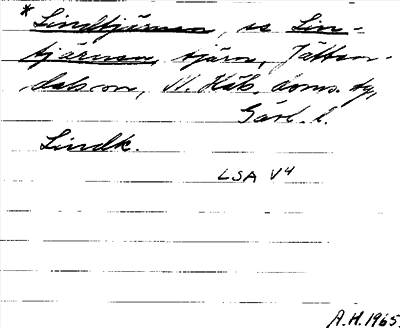 * Lindtjärnen, se Lin-
tjärnen, tjärn, Jätten-
dals sn, N. Häls. doms. tg,
Gävl. l.
Lindk.
LSA V4
A.H. 1965